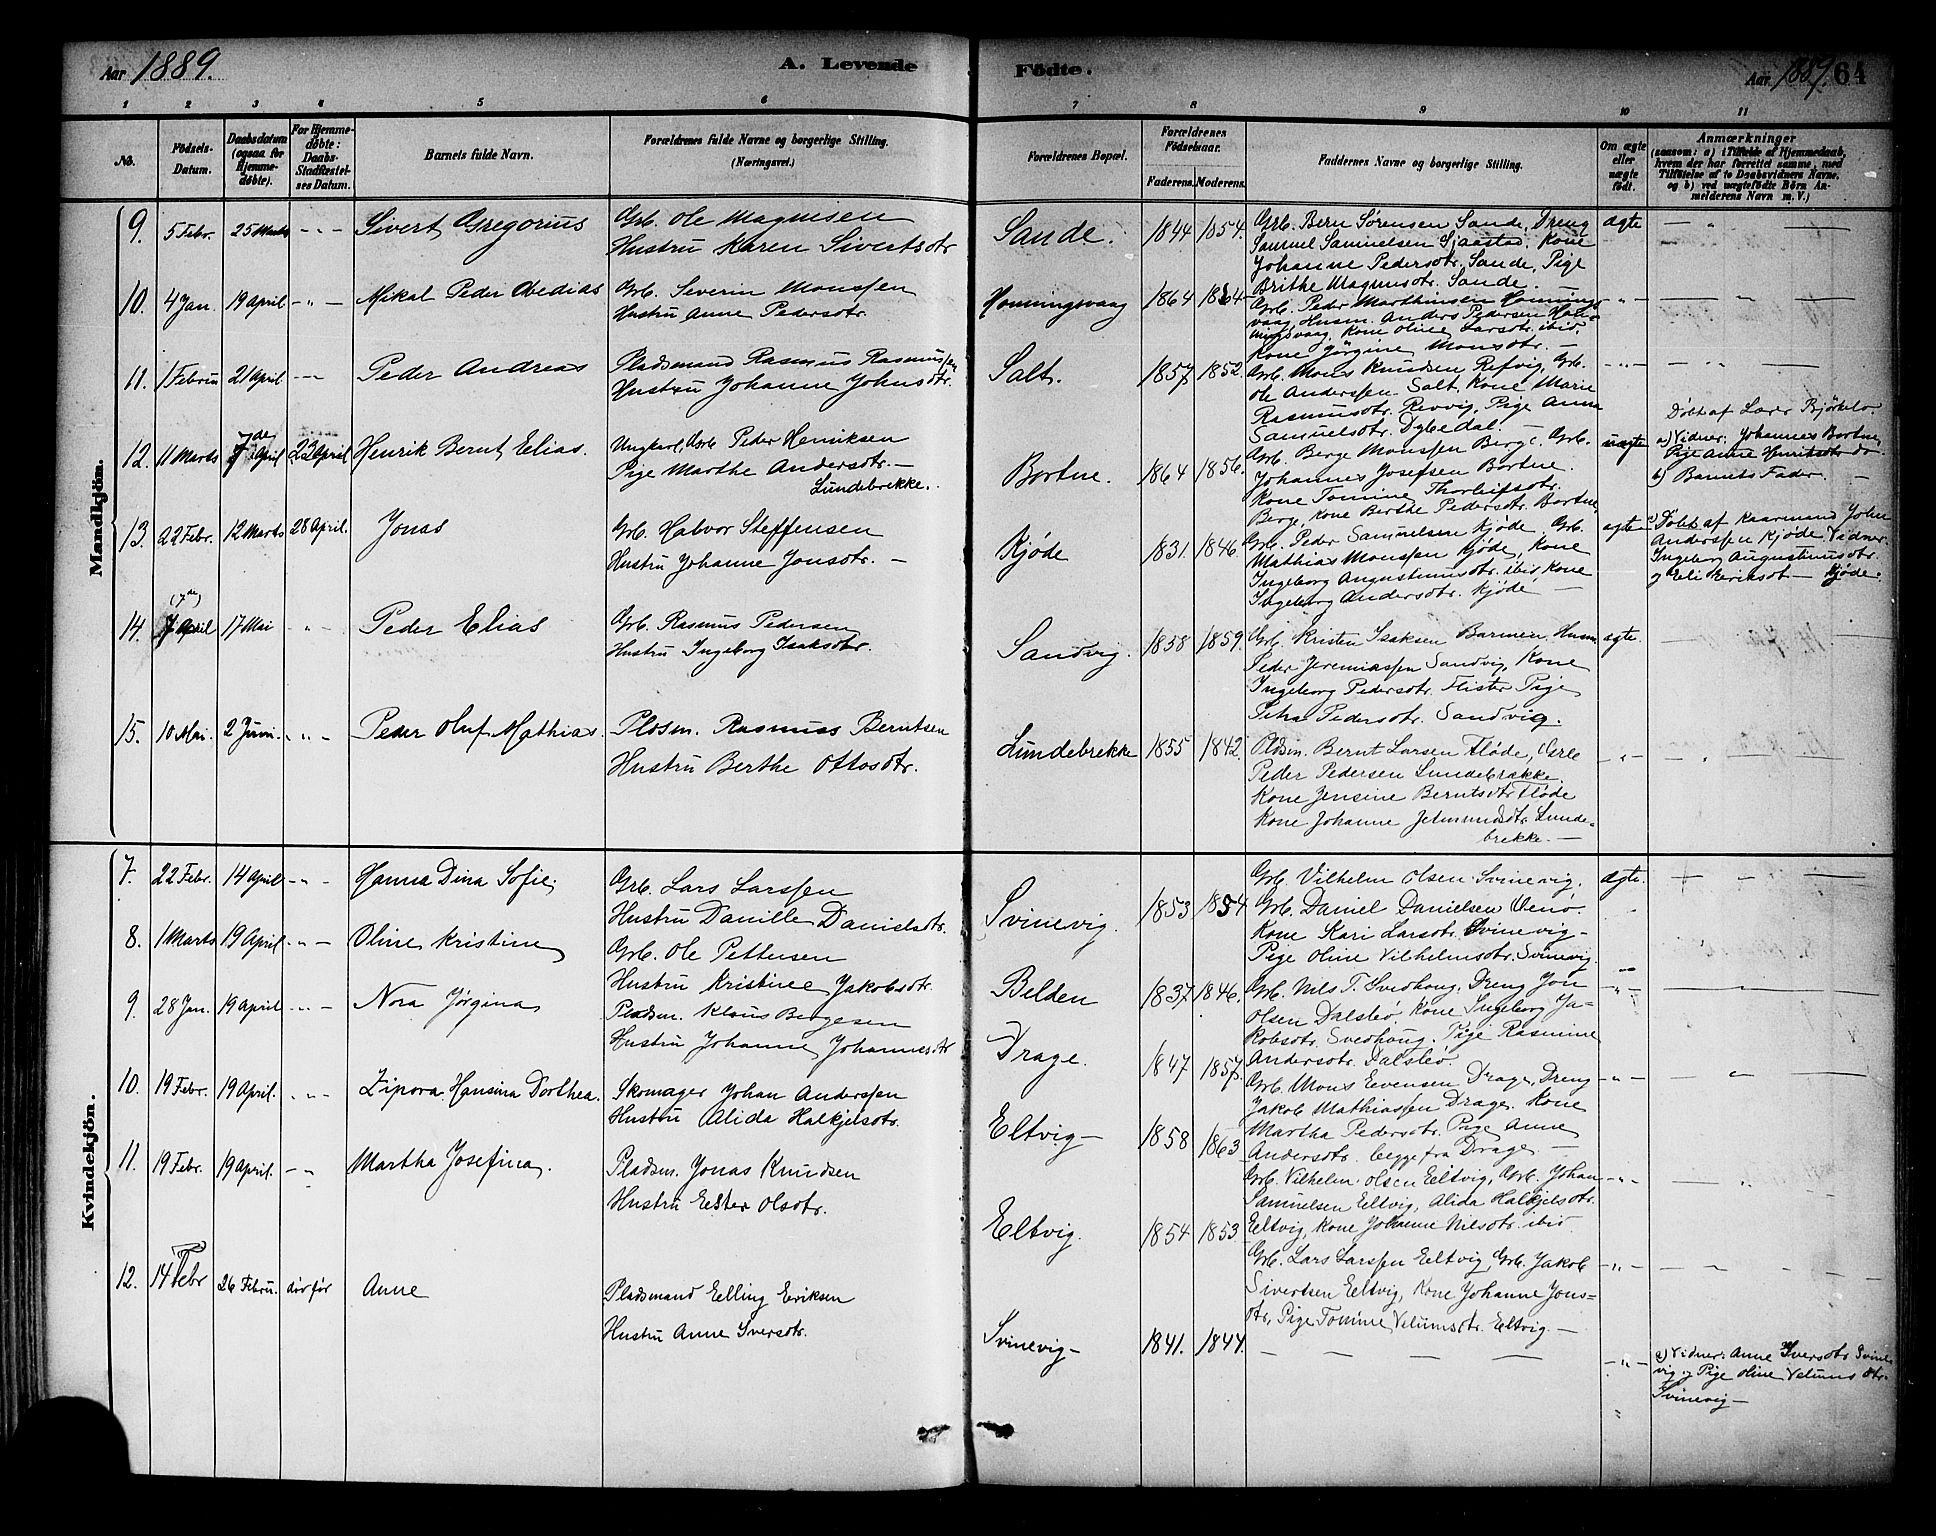 Aar 1889.
A. Levende Födte.
Aar 1889. 64
1 2 3 4 5 6 7 8 9 10 11
No.
Födsels-Datum.
Daabsdatum (ogsaa for Hjemmedøbte).
For Hjemmedøbte: Daabs-Stadfæstelses Datum.
Barnets fulde Navn.
Forældrenes fulde Navne og borgerlige Stilling. (Næringsvei.)
Forældrenes Bopæl.
Forældrenes Födselsaar.
Faderens. Moderens.
Faddernes Navne og borgerlige Stilling.
Om ægte eller uægte født.
Anmærkninger
(saasom: a) i Tilfælde af Hjemmedaab, hvem der har forrettet samme, med Tilföielse af to Daabsvidners Navne, og b) ved uægtefödte Börn Anmelderens Navn m. V.)
Mandkjön.
9. 5 Febr. 25 Marts - " - Sivert Gregorius
Grb. Ole Magnusen
Hustru Karen Sivertsdtr
Sande. 1844 1854.
Grb. Bern Sørensen Sande, Dreng
Samuel Samuelsen Sjaastad, Kone
Johanne Pedersdtr. Sande, Pige
Brithe Magnusdtr. Sande. —
ægte
10. 4 Jan. 19 April - " - Mikal Peder Abedias
Grb. Severin Monssen
Hustru Anne Pedersdtr.
Honningsvaag 1864 1864
Grb. Peder Marthinsen Honnings-
vaag, Husm. Anders Pedersen Hon-
ningsvaag, Kone Oline Larsdtr. ibid.
Kone Jørgine Monsdtr. —
- " -
11. 1 Februar 21 April - " - Peder Andreas
Pladsmand Rasmus Rasmussen
Hustru Johanne Johnsdtr.
Salt. 1857 1852.
Grb. Mons Knudsen Refvig, Grb.
Ole Anderssen Salt, Kone Marie
Rasmusdtr. Revvig, Pige Anna
Samuelsdtr. Dybedal. —
- " -
12. 11 Marts 7de April 22 April Henrik Bernt Elias.
Ungkarl, Grb. Peder Henriksen
Pige Marthe Andersdtr. —
Lundebrekke.
Bortne. 1864 1856.
Grb. Berge Monssen Berge, Grb.
Johannes Josefsen Bortne.
Kone Tomine Thorleifsdtr.
Berge, Kone Berthe Pedersdtr. Bortne
uægte
Døbt af Lærer Bjørkelo.
a) Vidner: Johannes Bortne,
Pige Anne Henriksdtr do
b) Barnets Fader. —
13. 22 Febr. 12 Marts 28 April. Jonas
Grb. Halvor Steffensen
Hustru Johanne Jonsdtr. —
Kjøde 1831. 1846.
Grb. Peder Samuelsen Kjøde, Grb.
Mathias Monssen Kjøde, Kone
Ingeborg Augustinusdtr. ibid, Kone
Ingeborg Andersdtr. Kjøde —
ægte
a) Døbt af Kaarmand John
Anderssen Kjøde, Vidner:
Ingeborg Augustinusdtr.
og Eli Eriksdt — Kjøde.
14. (7de) 7 April 17 Mai - " - Peder Elias
Grb. Rasmus Pedersen
Hustru Ingeborg Isaksdtr.
Sandvig. 1858 1859.
Grb. Kristen Isaksen Barmen, Husm
Peder Jeremiassen Sandvig, Kone
Ingeborg Pedersdtr. Flister, Pige
Petra Pedersdtr. Sandvig.
ægte.
15. 10 Mai. 2 Juni. - " - Peder Oluf Mathias.
Pldsm. Rasmus Berntsen
Hustru Berthe Ottosdtr.
Lundebrekke 1855 1842.
Pldsm. Bernt Larsen Fløde,
Peder Pedersen Lundebrække
Kone Jensine Berntsdtr Fløde
Kone Johanne Jetmundsdtr. Lunde-
brekke. —
- " -
Kvindekjön.
7. 22 Febr. 14 April - " - Hanna Dina Sofie.
Grb. Lars Larssen
Hustru Danille Danielsdtr.
Svinevig. 1853 1854
Grb. Vilhelm Olsen Svinevig,
Grb. Daniel Danielsen
Kone Kari Larsdtr. Svinevig —
Pige Oline Vilhelmsdtr. Svinevig.
ægte.
8. 1 Marts 19 April - " - Oline Kristine
Grb. Ole Pettersen
Hustru Kristine Jakobsdtr.
Belden 1837 1846.
Grb. Nils T. Svedhoug, Dreng Jon
Olsen Dalsbø, Kone Ingeborg Ja-
kobsdtr. Svedhoug, Pige Rasmine
Andersdtr. Dalsbø.
- " -
9. 28 Jan. 19 April - " - Nora Jørgina
Pladsm. Klaus Bergesen
Hustru Johanne Johannesdtr
Drage. 1847 1857.
Grb. Mons Evensen Drage, Dreng
Jakob Mathiassen Drage. Kone
Martha Pedersdtr. Pige Anne
Andersdtr. begge fra Drage —
- " -
10. 19 Febr. 19 April. - " - Zipora Hansina Dorthea.
Skomager Johan Anderssen
Hustru Alida Halkjelsdtr.
Eltvig — 1858 1863
Grb. Vilhelm Olsen Eeltvig, Grb. Johan
Samuelsen Eeltvig, Alida Halkjelsdtr.
Eeltvig, Kone Johanne Nilsdtr. ibid
- " -
11. 19 Febr. 19 April. - " - Martha Josefina.
Pladsm. Jonas Knudsen
Hustru Eester Olsdtr.
Eltvig. 1854 1853.
Grb. Lars Larssen Eeltvig, Grb. Jakob
Sivertsen Eeltvig, Kone Johanne Jons-
dtr, Pige Tomine Velumsdtr. Eeltvig. —
- " -
12. 14 Febr 26 Febru. dør før Anne
Pladsmand Eelling Eriksen
Hustru Anne Iversdtr.
Svinevig — 1841. 1844.
— — — —
- " -
a) Vidner: Anne Iversdtr Svine-
vig og Pige Oline Velumsdtr.
Svinevig —